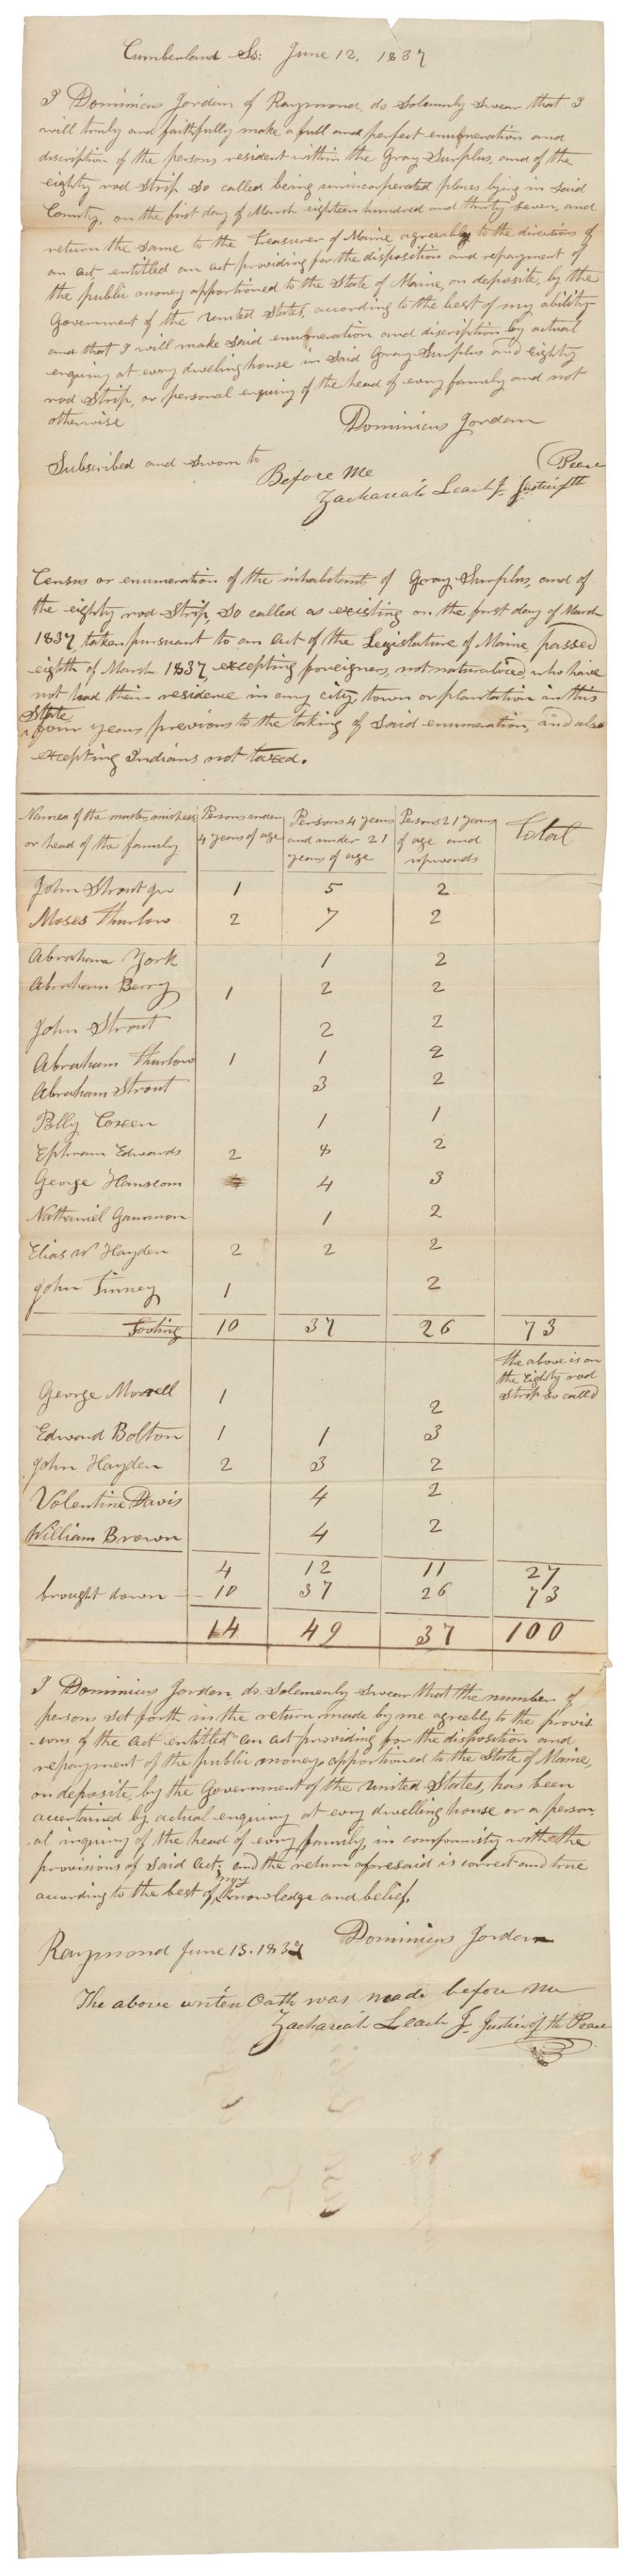 Cumberland Ss: June 12, 1837
I Dominicus Jordan of Raymond, do Solemnly Swear that I
will truly and faithfully make a full and perfect enumeration and
discription of the persons resident within the Gray Surplus, and of the
eighty rod Strip so called being unincorperated places lying in said
County, on the first day of March eighteen hundred and thirty seven, and
return the same to the Treasurer of Maine agreeably to the directions of
an act entitled an act providing for the disposition and repayment of
the public money apportioned to the State of Maine, on deposite, by the
Government of the United States, according to the best of my ability
and that I will make said enumeration and discription by actual
enquiry at every dweling house in said Gray Surplus and Eighty
rod Strip, or personal enquiry of the head of every family and not
otherwise
Dominicus Jordan
Subscribed and Sworn to
Before Me
Zachariah Leach Jr Justice of the
(Peace
Census or enumeration of the inhabitants of Gray Surplus, and of
the eighty rod Strip, So called as existing on the first day of March
1837, taken pursuant to an act of the Legislature of Maine, passed
eighth of March 1837, excepting foreigners, not naturalized, who have
not had their residence in any city, town or plantation in this
State
four years previous to the taking of said enumeration, and also
excepting Indians not taxed.
Names of the master, mistress or head of the family
Persons under 4 years of age
Persons 4 years and under 21 years of age
Persons 21 years of age and upwards
Total
John Strout Jr 1 5 2
Moses Thurlow 2 7 2
Abraham York 1 2
Abraham Berry 1 2 2
John Strout 2 2
Abraham Thurlow 1 1 2
Abraham Strout 3 2
Polly Coxeen 1 1
Ephraim Edwards 2 8 2
George Hanscom 4 3
Nathaniel Gammon 1 2
Elias W Hayden 2 2 2
John Tinney 1 2
Footing 10 37 26 73
the above is on
the Eighty rod
Strip so called
George Morrell 1 2
Edward Bolton 1 1 3
John Hayden 2 3 2
Volentine Davis 4 2
William Brown 4 2
4 12 11 27
brought down 10 37 26 73
14 49 37 100
I Dominicus Jordan, do Solemenly Swear that the number of
persons set forth in the return made by me agreebly to the provis
ions of the act entitled "an act providing for the disposition and
repayment of the public money apportioned to the State of Maine,
on deposite, by the Government of the United States, has been
ascertained by actual enquiry at every dwelling house or a person
al inquiry of the head of every family, in comformity with the
provisions of said act; and the return aforesaid is correct and true
according to the best of my knowledge and belief,
Raymond June 15. 1837 Dominicus Jordan
The above writen Oath was made before me
Zachariah Leach Jr Justice of the Peace